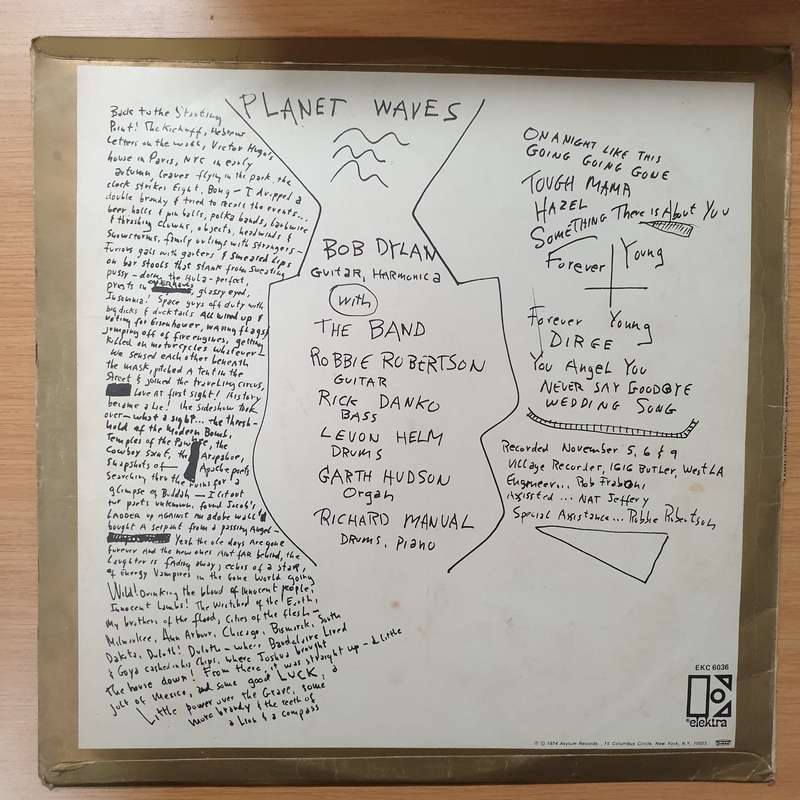 Back to the Starting
Point! The Kickoff, Hebrew
letters on the wall, Victor Hugo's
house in Paris, NYC in early
autumn, leaves flying in the park, the
clock strikes Eight, Bong — I dropped a
double brandy & tried to recall the events...
beer halls & pin balls, polka bands, barbwire
& thrashing clowns, objects, headwinds &
snowstorms, family outings with strangers —
Furious gals with garters & smeared lips
on bar stools that stank from sweating
pussy — doing the Hula — perfect,
priests in glassy eyed,
Insomnia! Space guys off duty with
big dicks & ducktails All wired up &
voting for Eisenhower, waving flags &
jumping off of fire engines, getting
killed on motorcycles whatever —
We sensed each other beneath
the mask, pitched a tent in the
Street & joined the traveling circus,
Love at first sight! History
became a lie! the sideshow took
over — what a sight... the thresh-
hold of the Modern Bomb,
Temples of the Pawnee, the
Cowboy saint, the Arapahoe,
snapshots of — Apache poets
searching thru the ruins for a
glimpse of Buddah — I lit out
for parts unknown, found Jacob's
LADDER up AGAINST an adobe wall &
bought A serpent from a passing Angel —
Yeah the ole days Are gone
forever And the new ones Aint fAR behind, the
Laughter is fading away, echos of a star,
of Energy Vampires in the Gone World going
Wild! Drinking the blood of innocent people,
Innocent Lambs! The Wretched of the Earth,
My brothers of the flood, Cities of the flesh —
Milwaukee, Ann Arbour, Chicago, Bismarck, South
Dakota, Duluth! Duluth — where Baudelaire Lived
& Goya cashed in his Chips, where Joshua brought
the house down! From there, it was straight up — A little
jolt of Mexico, and some good LUCK, a
Little power over the Grave, some
more brandy & the teeth of
a Lion & a compass
PLANET WAVES
BOB DYLAN
GUITAR, HARMONICA
with
THE BAND
ROBBIE ROBERTSON
GUITAR
RICK DANKO
BASS
LEVON HELM
DRUMS
GARTH HUDSON
Organ
RICHARD MANUAL
DRUMS, PIANO
ON A NIGHT LIKE THIS
GOING GOING GONE
TOUGH MAMA
HAZEL
SOMETHING There is About You
Forever Young
Forever Young
DIRGE
You Angel You
NEVER SAY GOODBYE
WEDDING SONG
Recorded November 5, 6 & 9
Village Recorder, 1616 Butler, West LA
Engineer... Rob Fraboni
Assisted... NAT Jeffery
Special Assistance... Robbie Robertson
EKC 6036
elektra
℗ © 1974 Asylum Records, 15 Columbus Circle, New York, N.Y. 10023